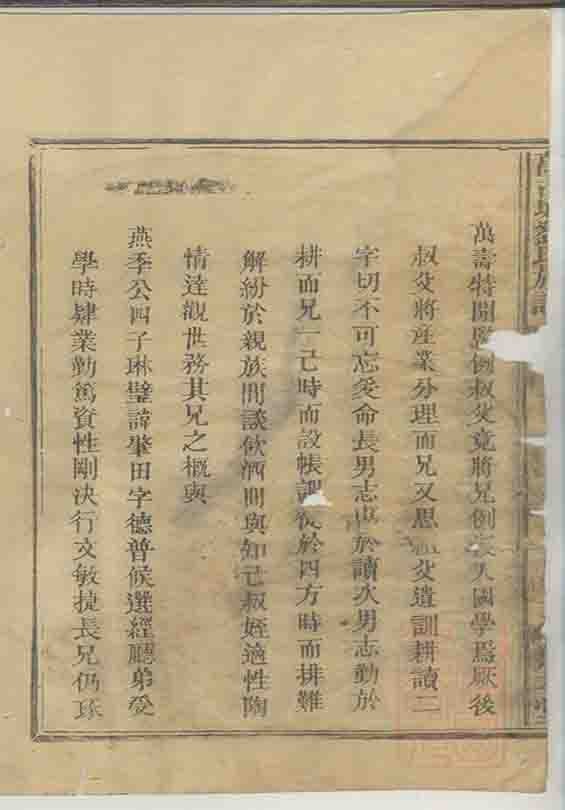 萬壽特開恩例叔父竟將兄例入國學爲厥後
叔父將產業分理而兄又思父遺訓耕讀二
字切不可忘爰命長男志專於讀次男志勤於
耕而兄一己時而設帳課徒於四方時而排難
解紛於親族間談飲酒間與知己叔姪適性陶
情達觀世務其兄之概與
燕季公四子琳璧諱肇田字德普候選經廳弟受
學時肄業勤篤資性剛決行文敏捷長兄仍琢